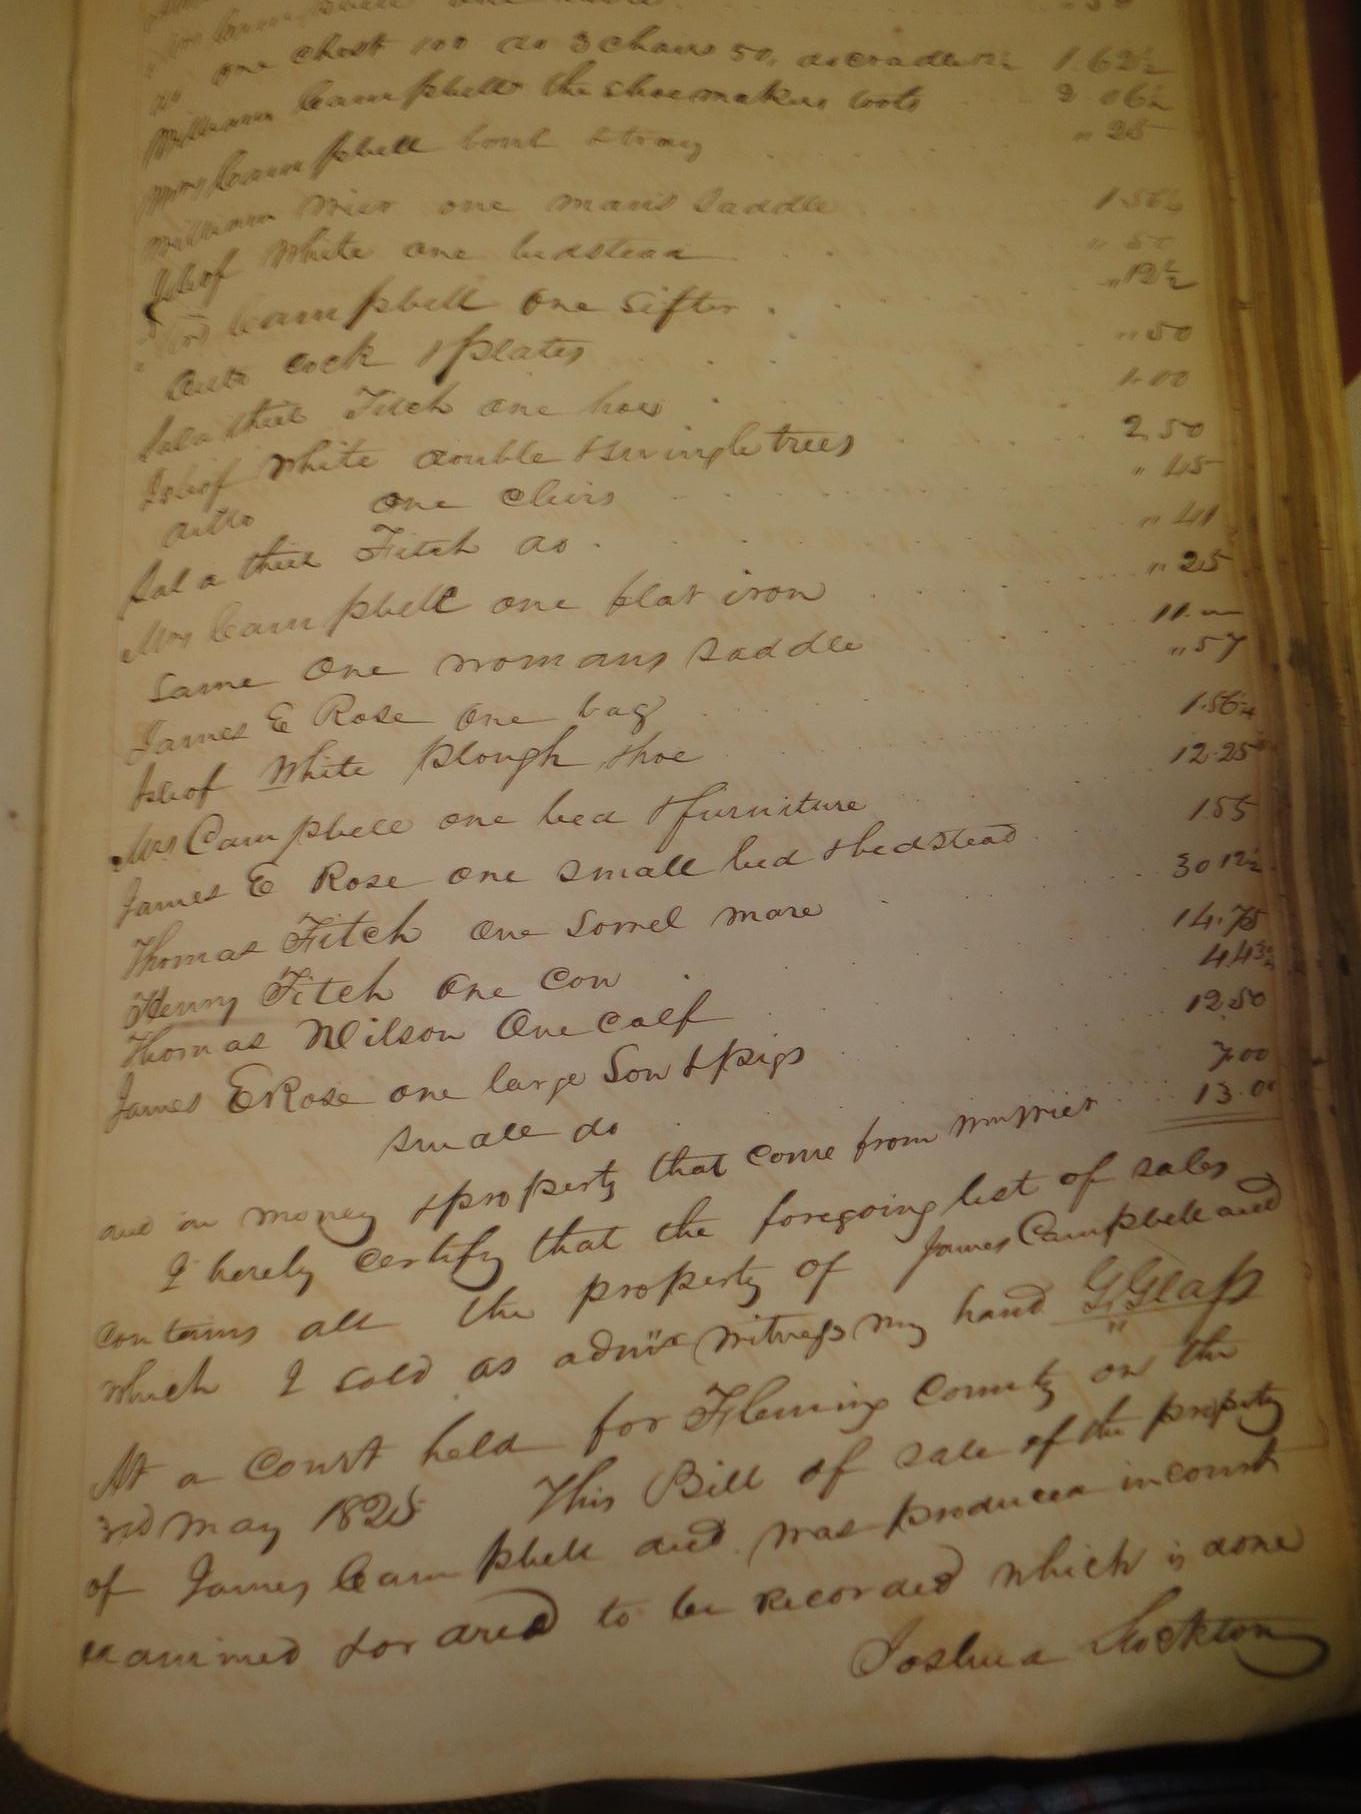 Mrs Campbell one
do one chest 100 do 3 chairs 50, do cradle 12½ 1.62½
William Campbell the shoemakers tools 2 06¼
Mrs Campbell bowl & tray " 25
William Wier one mans Saddle 1.56¼
Isleof White one bedstead " 50
Mrs Campbell one Sifter " 12½
Ditto Cock & plates " 50
Salathiel Fitch one hoe 1.00
Isleof White double & swingle trees 2.50
ditto one clivis " 45
Salathiel Fitch do " 41
Mrs Campbell one flat iron " 25
Same One womans Saddle 11.
James E Rose one bag " 57
Isleof White plough & hoe 1.56¼
Mrs Campbell one bed & furniture 12.25
James E Rose one small bed & bedstead 1.55
Thomas Fitch one Sorrel mare 30 12½
Henry Fitch One Cow 14.75
Thomas Wilson One calf 4.43¾
James E Rose one large Sow & pigs 12.50
small do 7.00
and in money & property that come from Wm Wier 13.00
I hereby certify that the foregoing list of sales
contains all the property of James Campbell decd
which I sold as admix witness my hand G, Glass
At a Court held for Fleming County on the
3rd May 1825 This Bill of sale of the property
of James Campbell decd was produced in court
examined & ordered to be recorded which is done
Joshua Stockton